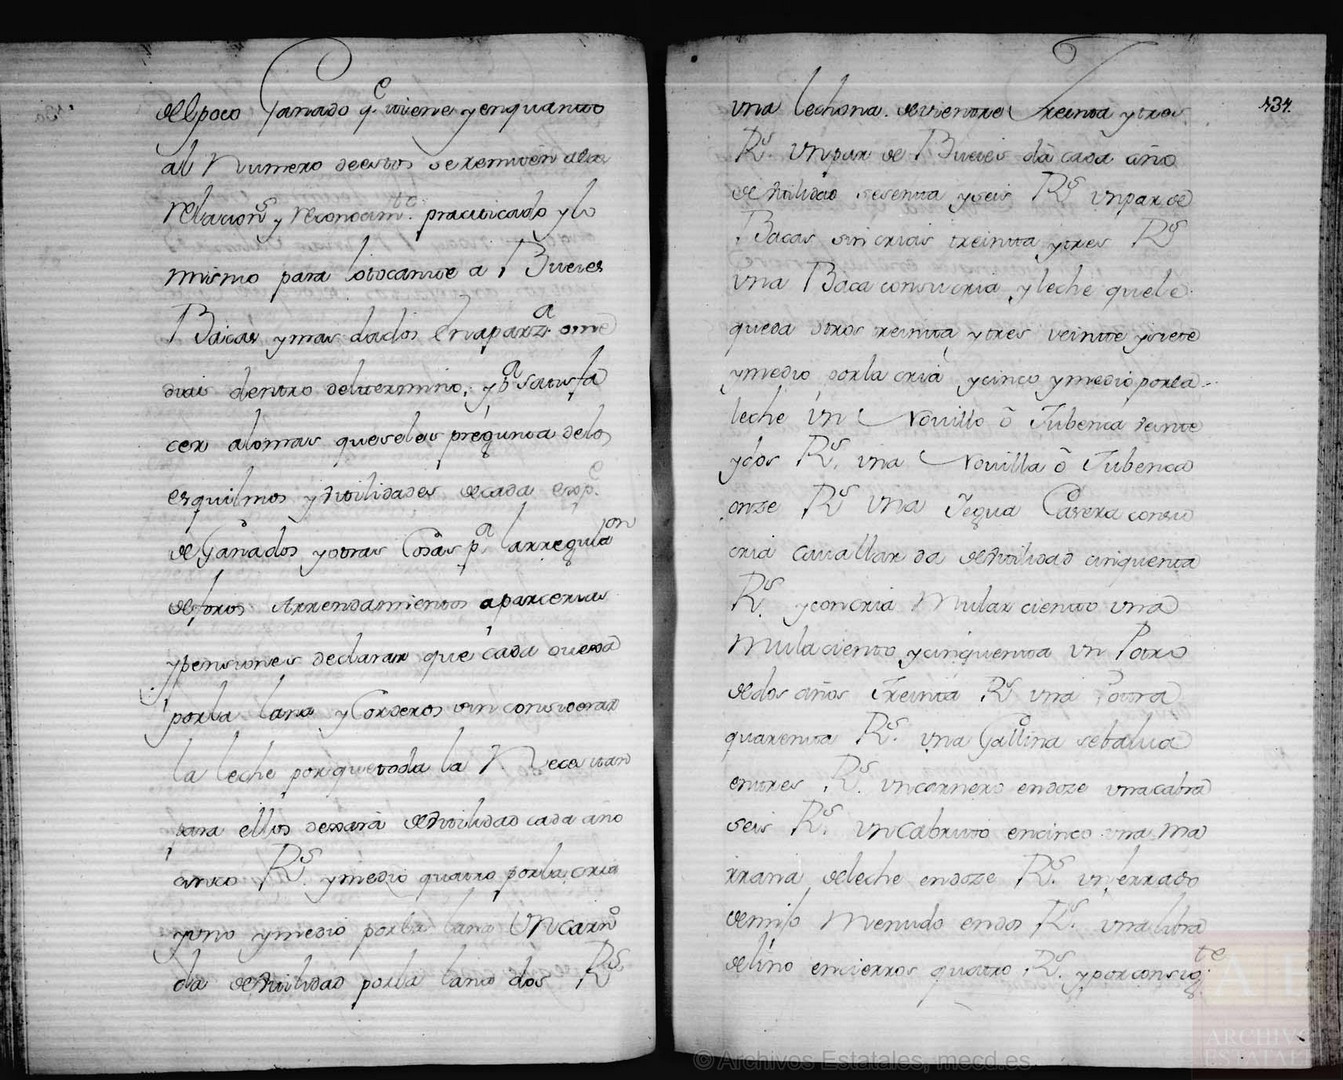 del poco Ganado q.e tiene y enquanto
al Numero de estos se remiten alas
relacion.s y reconocim.to practicado y lo
mismo para lo tocante a Bueies
Bacas y mas dados en aparz.a
dentro del termino; y p.a satisfa
cer alo mas que seles pregunta delos
esquilmos y vtilidades de cada esp.e
de Ganados y otras Cosas p.a la rregula.on
de foros Arrendamientos aparcerias
y pensiones declaran que cada oueja
por la lana y Corderos sin considerar
la leche porque toda la Necesitan
para ellos dexará de vtilidad cada año
cinco R.s y medio quatro por la cria
y uno y medio por la lana Un Carn.o
da de vtilidad por la lana dos R.s
una lechona de vientre Treinta y tres
R.s un par de Bueies dá cada año
de vtilidad sesenta y seis R.s un par de
Bacas sin crias treinta y tres R.s
una Baca con su cria y leche que le
queda otros treinta y tres veinte y siete
y medio por la cria y cinco y medio por la
leche un Nouillo ó Jubenco veinte
y dos R.s una Nouilla ó Jubenca
onze R.s una Yegua Casera con su
cria cauallar da de vtilidad cinquenta
R.s y con cria Mular ciento una
Mula ciento y cinquenta un Potro
de dos años Treinta R.s una Potra
quarenta R.s una Gallina se balua
en tres R.s un carnero en doze una cabra
seis R.s un Cabrito en cinco una ma
rrana de leche en doze R.s un ferrado
de mijo Menudo en dos R.s una libra
de lino en cierros quatro R.s y por consig.te
434.
© Archivos Estatales, mecd.es
ARCHIVOS
ESTATALES